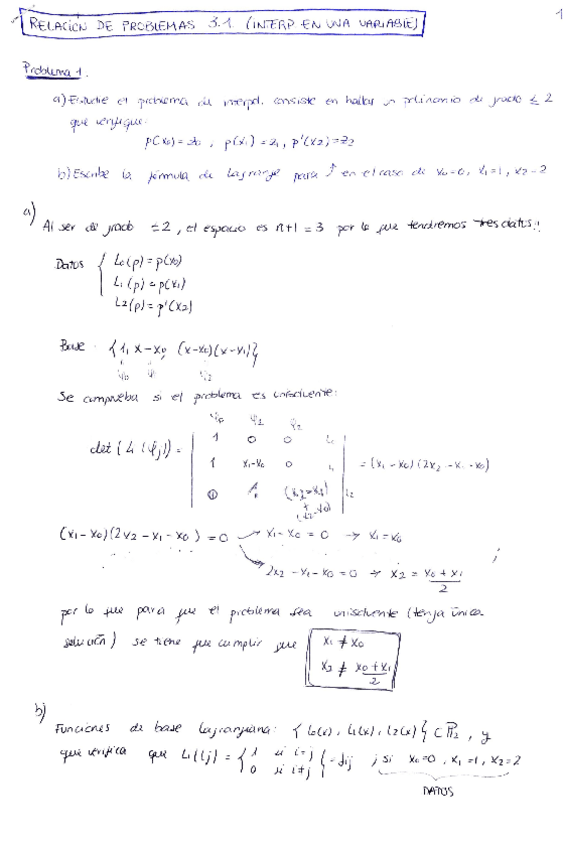 1
RELACIÓN DE PROBLEMAS 3.1 (INTERP. EN UNA VARIABLE)
Problema 1.
a) Estudie el problema de interpol. consiste en hallar un polinomio de grado ≤ 2
que verifique:
p(x0) = z0 , p(x1) = z1 , p'(x2) = z2
b) Escribe la fórmula de Lagrange para ↑ en el caso de x0=0, x1=1, x2=2
a)
Al ser de grado ≤2, el espacio es n+1 = 3 por lo que tendremos tres datos:
Datos { L0(p) = p(x0)
L1(p) = p(x1)
L2(p) = p'(x2)
Base {1, x-x0, (x-x0)(x-x1)}
φ0 φ1 φ2
Se comprueba si el problema es unisolvente:
φ0 φ1 φ2
det(Li(φj)) = | 1 0 0 | L0
| 1 x1-x0 0 | L1 = (x1-x0)(2x2-x1-x0)
| 0 1 (x2-x1)+(x2-x0) | L2
(x1-x0)(2x2-x1-x0) = 0 → x1-x0 = 0 → x1=x0 ;
→ 2x2-x1-x0 = 0 → x2 = x0+x1/2
por lo que para que el problema sea unisolvente (tenga única
solución) se tiene que cumplir que x1 ≠ x0
x2 ≠ x0+x1/2
b)
Funciones de base lagrangiana: {l0(x), l1(x), l2(x)} ⊂ P2, y
que verifica que Li(lj) = {1 si i=j
0 si i≠j} = δij ; si x0=0, x1=1, x2=2
DATOS